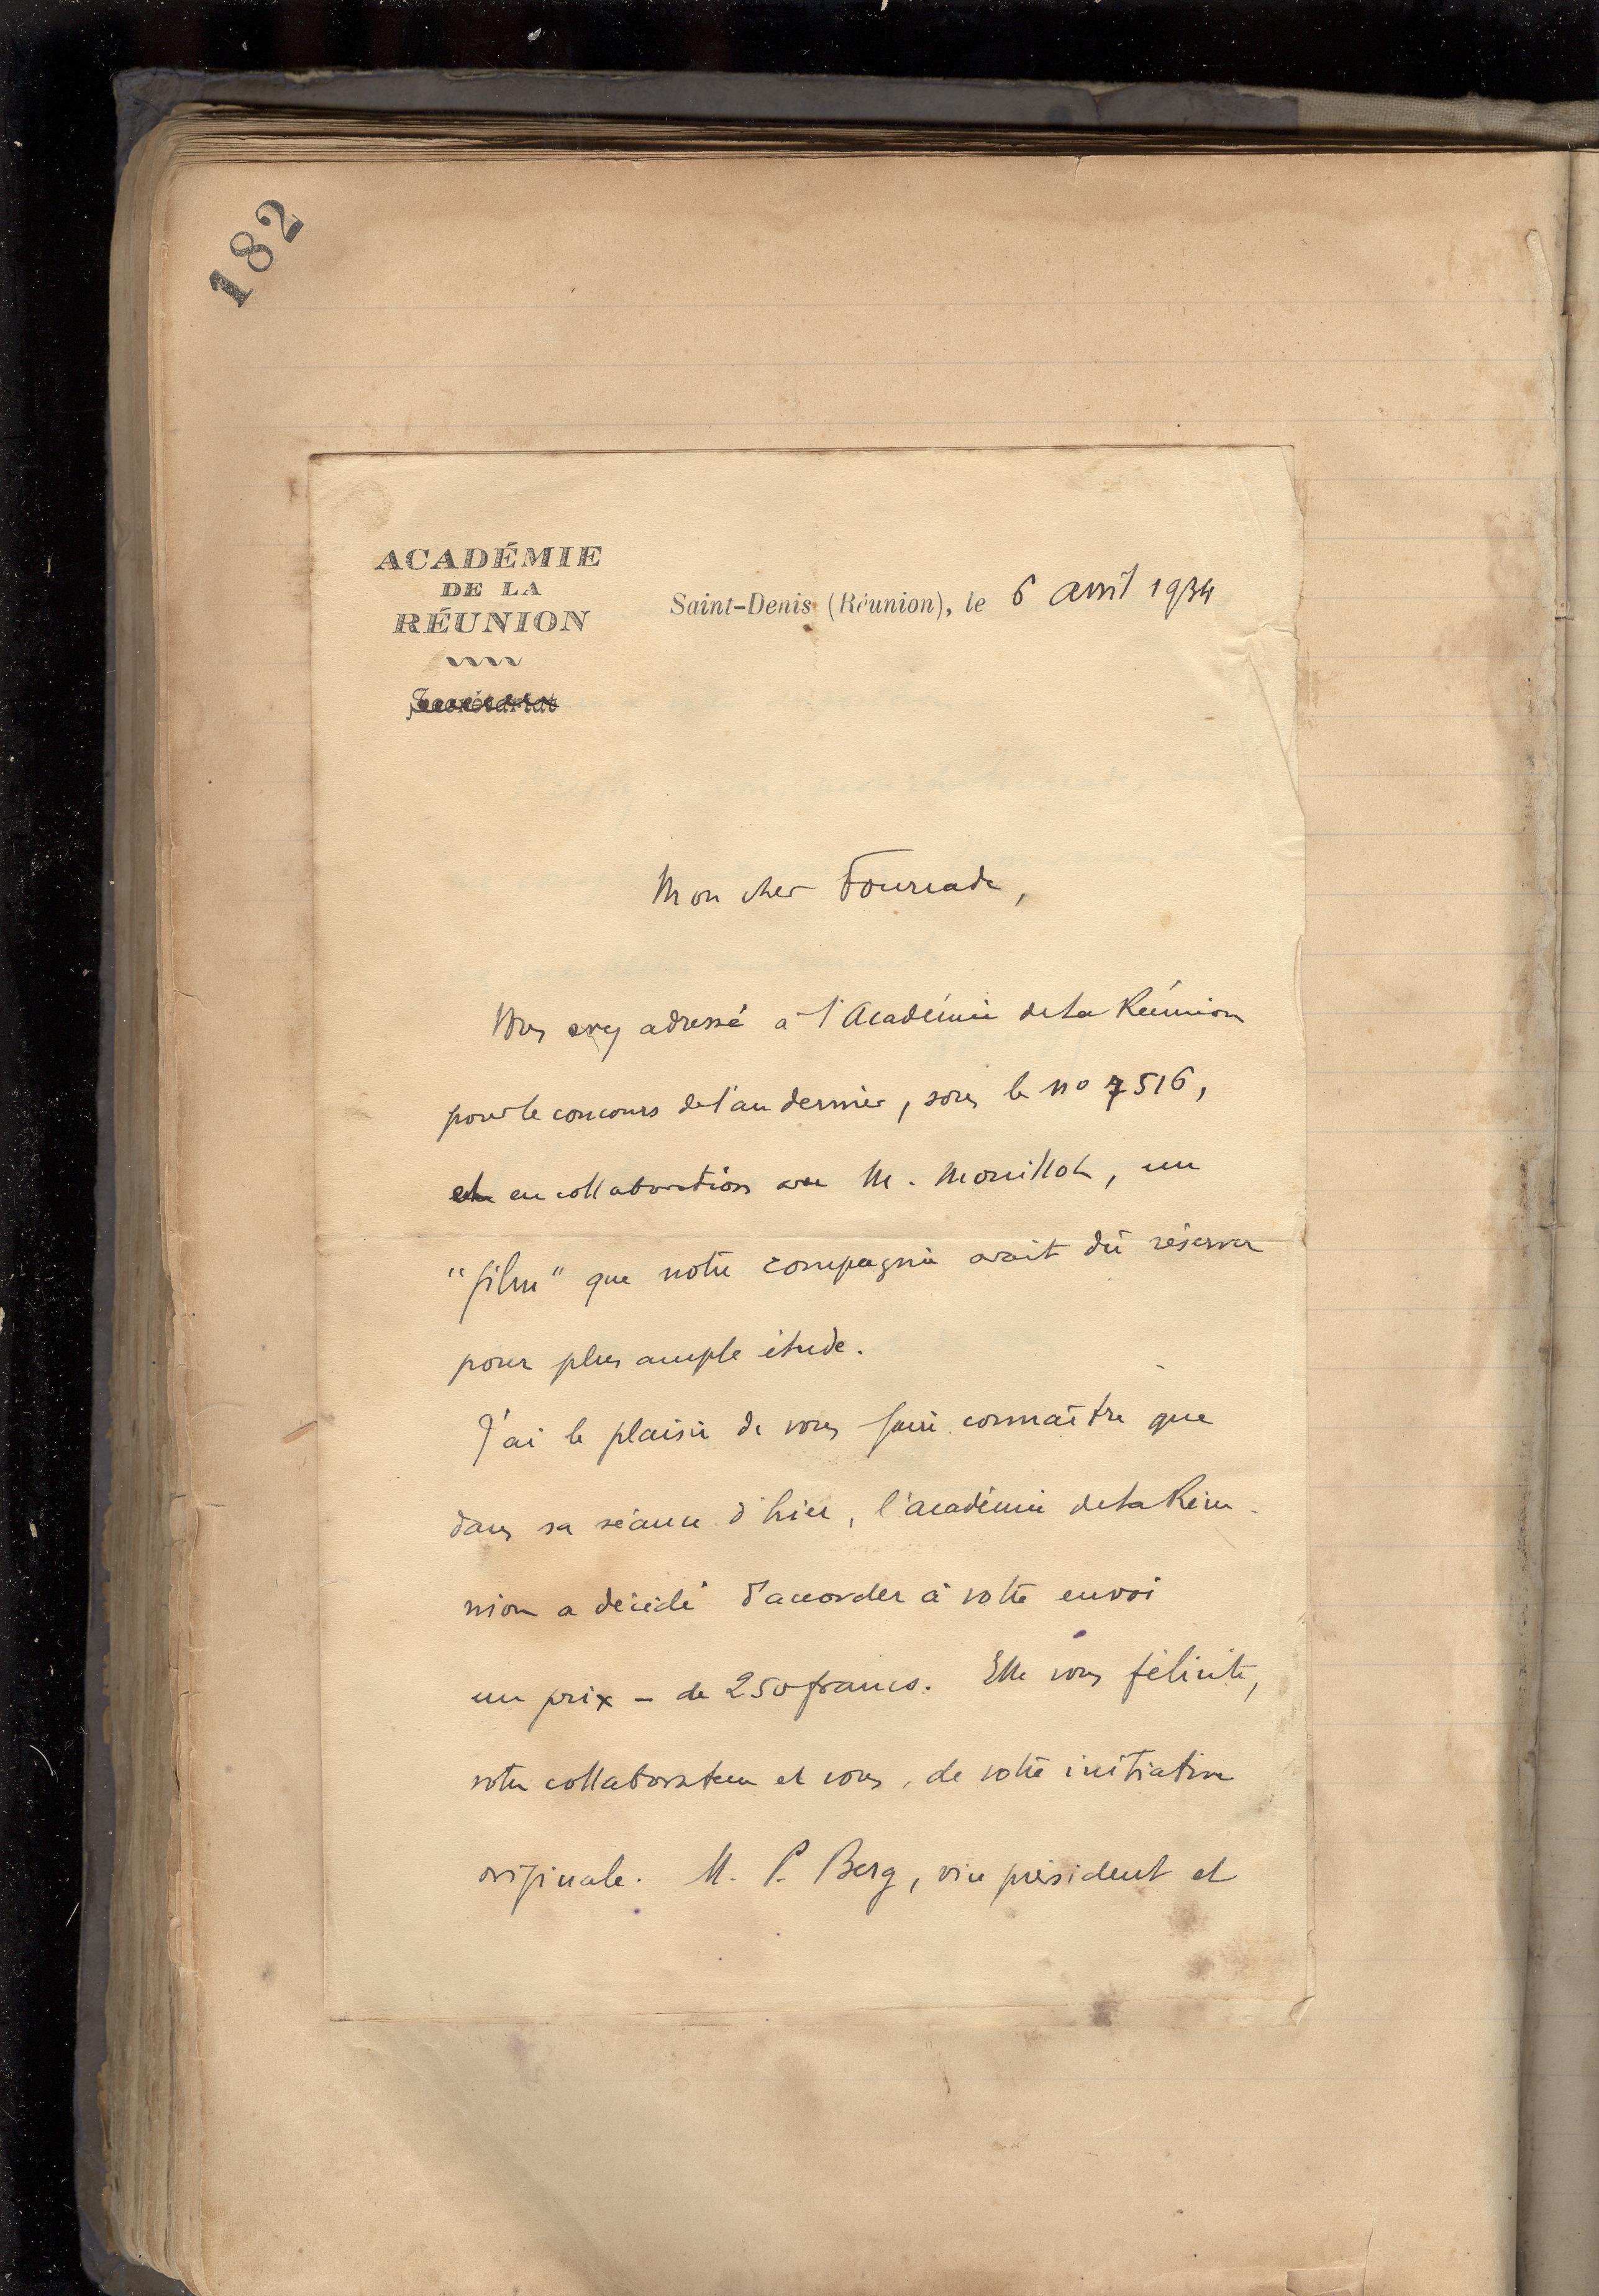 182
ACADÉMIE
DE LA
RÉUNION
Secrétariat
Saint-Denis (Réunion), le 6 avril 1934
Mon cher Fourcade,
Vous avez adressé à l'Académie de la Réunion
pour le concours de l'an dernier, sous le no 7516,
en collaboration avec M. Mouillot, un
"film" que notre compagnie avait dû réserver
pour plus ample étude.
J'ai le plaisir de vous faire connaître que
dans sa séance d'hier, l'académie de la Réu-
nion a décidé d'accorder à votre envoi
un prix - de 250 francs. Elle vous félicite,
votre collaborateur et vous, de votre initiative
originale. M. P. Berg, vice président et